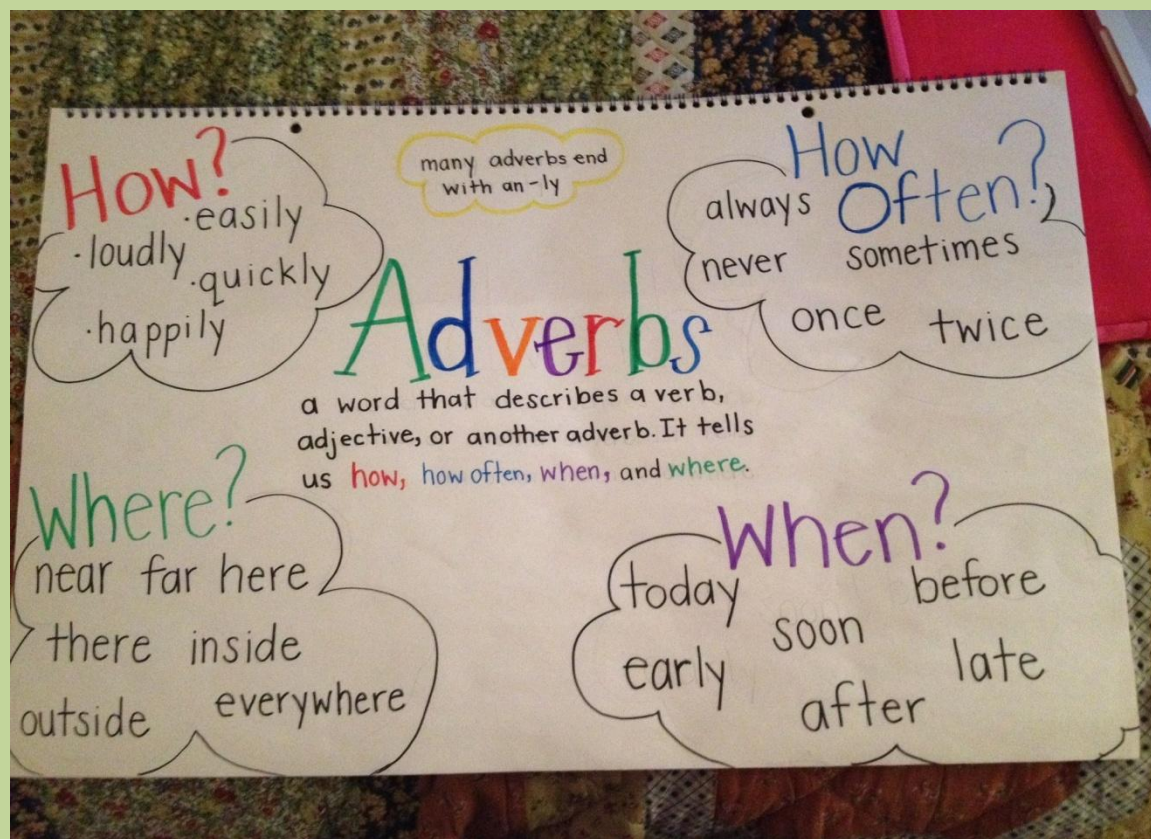 How?
·easily
·loudly
·quickly
·happily
many adverbs end
with an -ly
How
Often?
always
never sometimes
once twice
Adverbs
a word that describes a verb,
adjective, or another adverb. It tells
us how, how often, when, and where.
Where?
near far here
there inside
outside everywhere
When?
today before
soon
early late
after